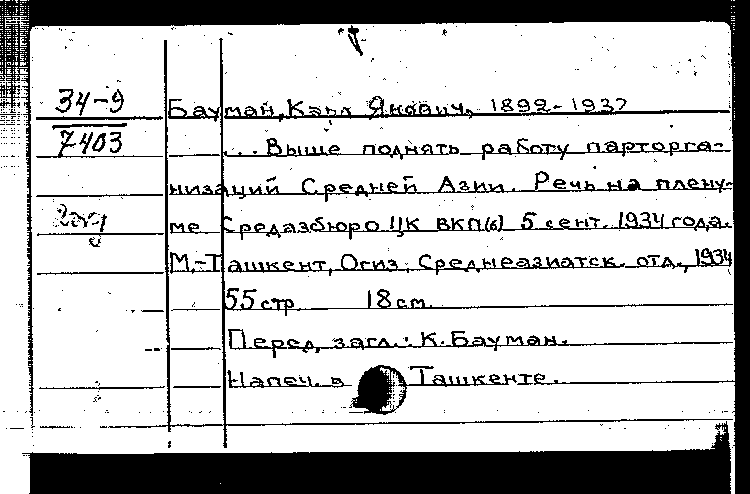 34-9
7403
Бауман, Карл Янович, 1892-1937
... Выше поднять работу парторга-
низаций Средней Азии. Речь на плену-
ме Средазбюро ЦК ВКП(б) 5 сент. 1934 года.
М.-Ташкент, Огиз, Среднеазиатск. отд., 1934
55 стр 18 см.
Перед загл.: К. Бауман.
Напеч. в Ташкенте.